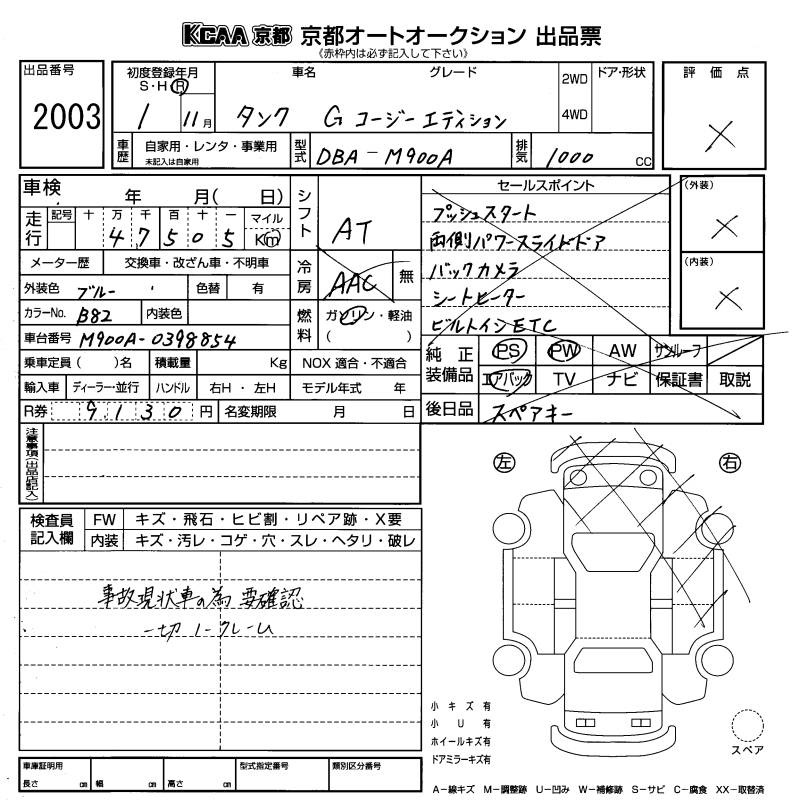 KCAA 京都 京都オートオークション 出品票
《赤枠内は必ず記入して下さい》
出品番号 2003
初度登録年月 S・H・R 1 11月
車名 グレード
タンク G コージーエディション
2WD 4WD
ドア・形状
評価点 ×
車歴 自家用・レンタ・事業用
未記入は自家用
型式 DBA-M900A
排気 1000 CC
車検 年 月( 日)
走行 記号 十 万 千 百 十 一 マイル
47505 Km
メーター歴 交換車・改ざん車・不明車
外装色 ブルー 色替 有
カラーNo. B82 内装色
車台番号 M900A-0398854
乗車定員( )名 積載量 Kg
輸入車 ディーラー・並行 ハンドル 右H・左H
R券 9130円 名変期限 月 日
シフト AT
冷房 AAC 無
燃料 ガソリン・軽油
( )
NOX 適合・不適合
モデル年式 年
セールスポイント
プッシュスタート
両側パワースライドドア
バックカメラ
シートヒーター
ビルトインETC
(外装) ×
(内装) ×
純正装備品 PS PW AW サンルーフ
エアバック TV ナビ 保証書 取説
後日品 スペアキー
注意事項(出品店記入)
検査員記入欄
FW キズ・飛石・ヒビ割・リペア跡・X要
内装 キズ・汚レ・コゲ・穴・スレ・ヘタリ・破レ
事故現状車の為 要確認
一切ノークレーム
左 右
小キズ有
小U有
ホイールキズ有
ドアミラーキズ有
スペア
車庫証明用 型式指定番号 類別区分番号
長さ cm 幅 cm 高さ cm
A−線キズ M−調整跡 U−凹み W−補修跡 S−サビ C−腐食 XX−取替済